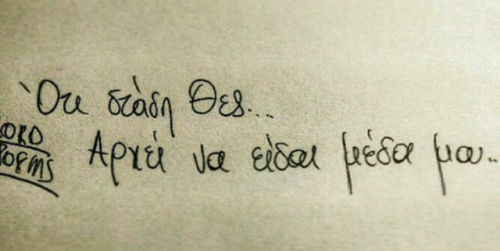 Ότι στάση θες...
LORD
POEMS
Αρκεί να είσαι μέσα μου..